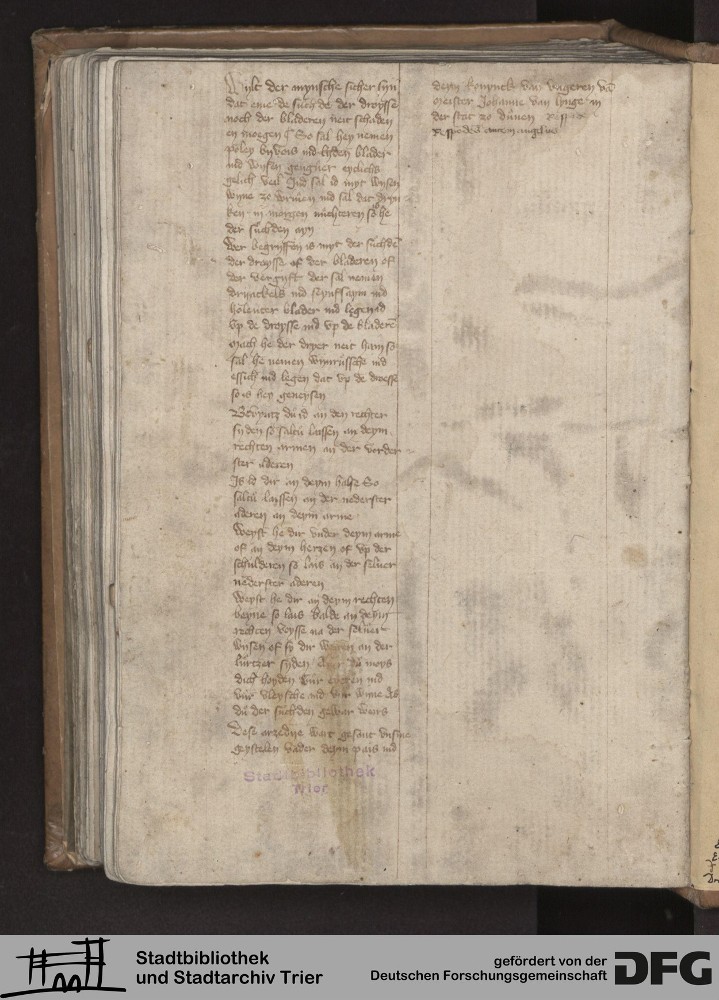 Wilt der mynsche sicher syn
dat eme de suchde der droysse
noch der bladeren neit schaden
en moegen So sal hey nemen
poley byvois ind lyden blader
ind wysen gengener
gelich veil Ind sal id myt wysen
wyne zo wriuen ind sal dat dryn
ken in morgen nuchteren so he
der suchden ayn
Wer begryffen is myt der suchde
der droysse of der bladeren of
der vergyft der sal nemen
dryackels ind seynfsaym ind
holenter blader ind legen id
vp de droysse ind vp de bladere
mach he der dryer neit hain so
sal he nemen wynrussche ind
essich ind legen dat vp de droesse
so is hey genesyn
du id an den rechter
syden so saltu laissen an deym
rechten armen an der vorder
ster aderen
Is id dir an deym halse So
saltu laissen an der nederster
aderen an deym arme
Weyst he dir vnder deym arme
of an deym hertzen of vp der
schulderen so lais an der seluer
nederster aderen
Weyst he dir an deym rechten
beyne so lais balde an deym
rechten voysse na der seluer
wysen of sy dir weren an der
lurtzer syden Auer du moys
dich hoyden vur eyeren ind
vur vleysche ind vur wyne As
du der suchden gewar weirs
Dese arzedije wart gesant vnsme
geystelen vader deym pais ind
deym konynck van vngeren va
meister Johanne van lynge in
der stat zo
Stadtbibliothek
Trier
Stadtbibliothek
und Stadtarchiv Trier
gefördert von der
Deutschen Forschungsgemeinschaft
DFG